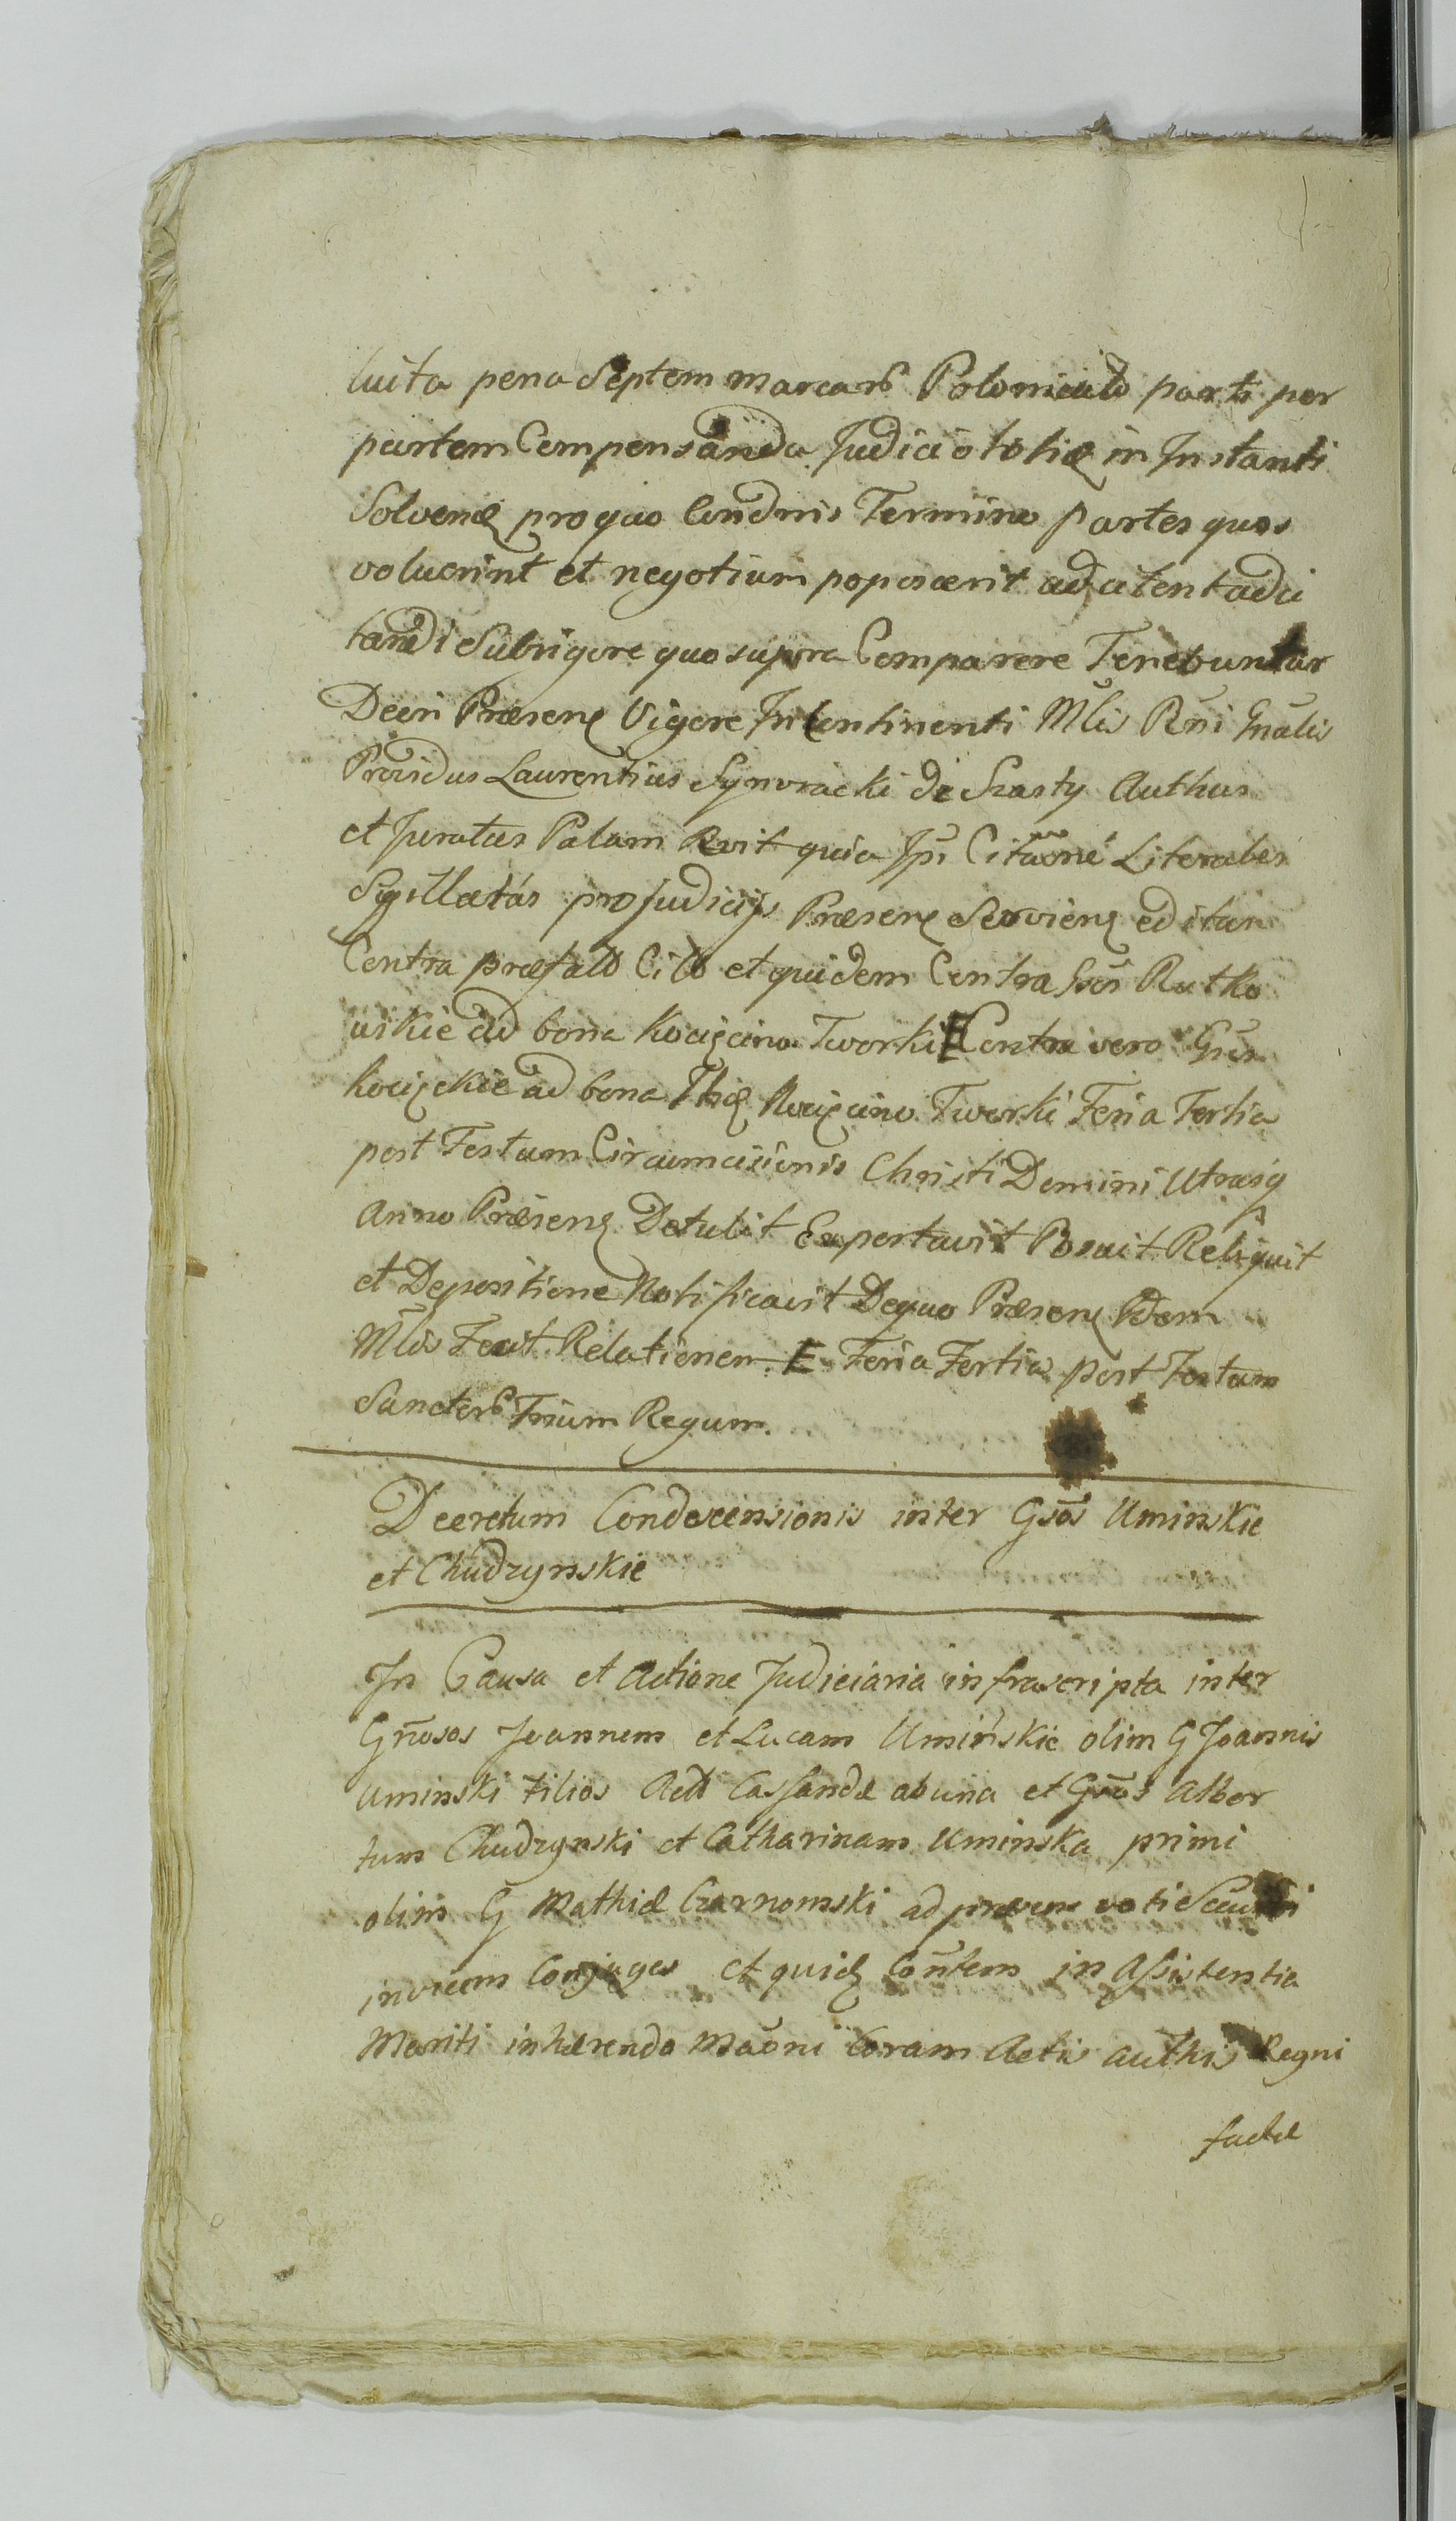 luita pena Septem marcarũ Polonicalõ parti per
partem Compensanda Judicio totiꝫ in Instanti
Solvenꝫ pro quo Condnis Termino partes quos
voluerint et negotium poposcerit ad attentadci
tandi Sub rigore quo supra Comparere Tenebuntur
Decri Præsenꝫ Vigore Incontinenti Mlis Rñi Gnãlis
Providus Laurentius Synoracki de Szasty Authus
et Juratus Palam Rvit quia Jpĩ Citaõne Literales
Sigillatás pro Judicijs Præsenꝫ Servienꝫ editan
Contra præfatõ Citõ et quidem Contra Gsõs Rutko
uskie ad bona Kocięcino Tworki Contra vero Gsõs
Kocięckie ad bona Thꝫ Kocięcino Tworki Feria Tertia
post Festum Circumcisionis Christi Domini Utrasq
Anno Præsenꝫ Detulit Exportavit Posuit Reliquit
et Depositione Notificavit De quo Præsenꝫ Idem
Mlis Fecit Relationem Feria Tertia post Festum
Sanctorũ Trium Regum.
Decretum Condescensionis inter Gsõs Uminskie
et Chudzynskie
In Causa et Actione Judiciaria infrascripta inter
Gñosos Joannem et Lucam Umińskie olim G Joannis
Uminski filios Actõ Cassandæ ab una et Gsõs Alber
tum Chudzynski et Catharinam Uminska primi
olim G Mathiæ Czarnomski ad præsens voti Secundi
invicem Conjuges et quidꝫ Cõñtem in Assistentia
Mariti inhærendo Maõni Coram Actis Authis Regni
factæ